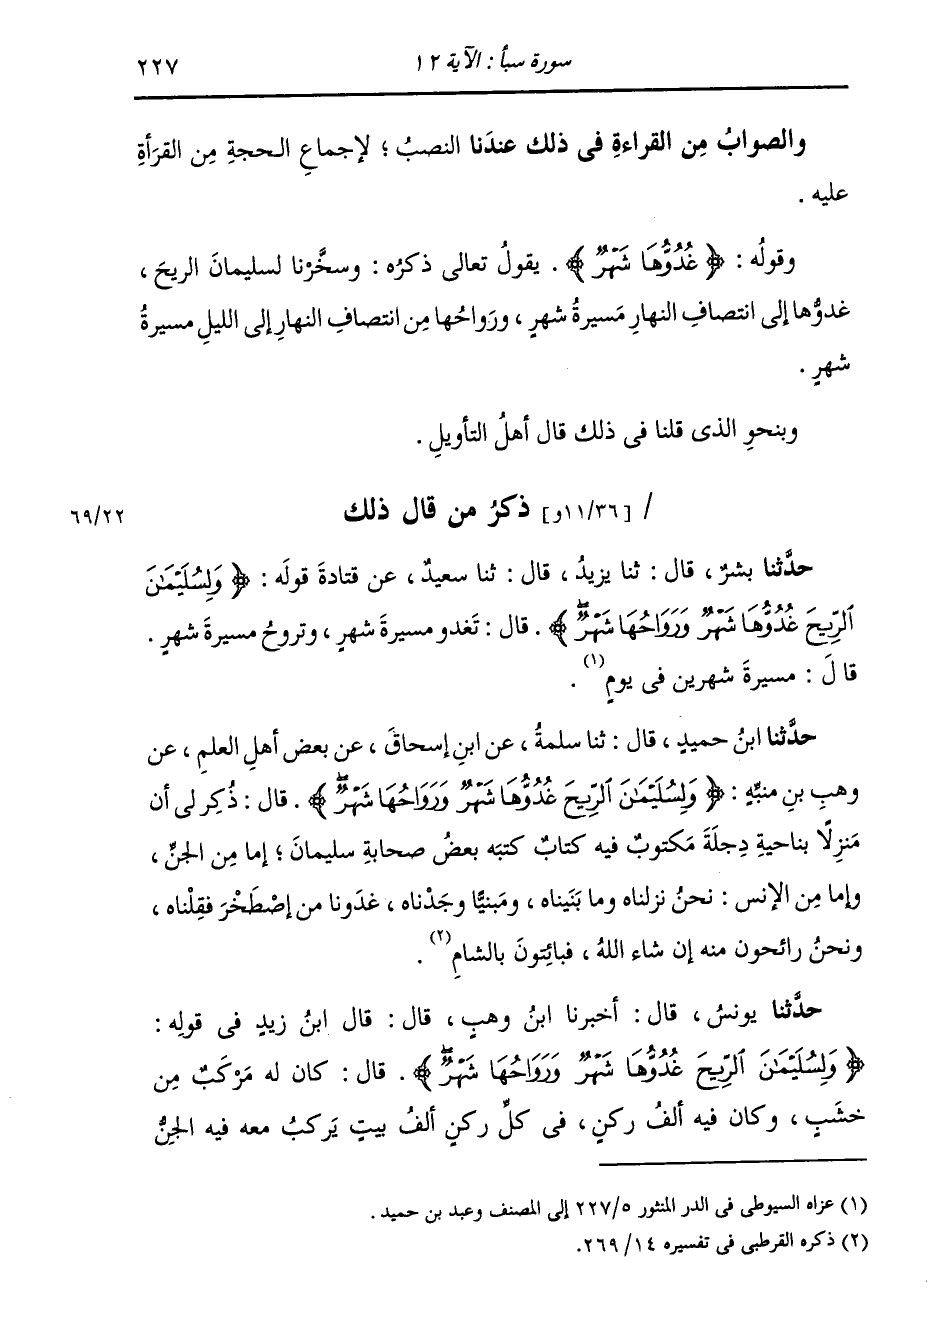 سورة سبأ : الآية ١٢ ٢٢٧
والصوابُ مِن القراءةِ فى ذلك عندَنا النصبُ ؛ لإجماعِ الحجةِ مِن القرَأةِ
عليه .
وقولُه : ﴿ غُدُوُّهَا شَهْرٌ ﴾ . يقولُ تعالى ذكرُه : وسخَّرْنا لسليمانَ الريحَ ،
غدوُّها إلى انتصافِ النهارِ مَسيرةُ شهرٍ ، ورَواحُها مِن انتصافِ النهارِ إلى الليلِ مسيرةُ
شهرٍ .
وبنحوِ الذى قلنا فى ذلك قال أهلُ التأويلِ .
/ [١١/٣٦و] ذكرُ من قال ذلك ٦٩/٢٢
حدَّثنا بشرٌ ، قال : ثنا يزيدُ ، قال : ثنا سعيدٌ ، عن قتادةَ قولَه : ﴿ وَلِسُلَيْمَٰنَ
ٱلرِّيحَ غُدُوُّهَا شَهْرٌ وَرَوَاحُهَا شَهْرٌۖ ﴾ . قال : تَغدو مسيرةَ شهرٍ ، وتروحُ مسيرةَ شهرٍ .
قالَ : مسيرةَ شهرين فى يومٍ (١) .
حدَّثنا ابنُ حميدٍ ، قال : ثنا سلمةُ ، عن ابنِ إسحاقَ ، عن بعضِ أهلِ العلمِ ، عن
وهبِ بنِ منبِّهٍ : ﴿ وَلِسُلَيْمَٰنَ ٱلرِّيحَ غُدُوُّهَا شَهْرٌ وَرَوَاحُهَا شَهْرٌۖ ﴾ . قال : ذُكِر لى أن
مَنزِلًا بناحيةِ دِجلَةَ مَكتوبٌ فيه كتابٌ كتبَه بعضُ صحابةِ سليمانَ ؛ إما مِن الجنِّ ،
وإما مِن الإنس : نحنُ نزلناه وما بَنَيناه ، ومَبنيًّا وجَدْناه ، غدَونا من إصْطَخْرَ فقِلْناه ،
ونحنُ رائحون منه إن شاء اللهُ ، فبائِتونَ بالشامِ (٢) .
حدَّثنا يونسُ ، قال : أخبرنا ابنُ وهبٍ ، قال : قال ابنُ زيدٍ فى قولِه :
﴿ وَلِسُلَيْمَٰنَ ٱلرِّيحَ غُدُوُّهَا شَهْرٌ وَرَوَاحُهَا شَهْرٌۖ ﴾ . قال : كان له مَرْكَبٌ مِن
خشَبٍ ، وكان فيه ألفُ ركنٍ ، فى كلِّ ركنٍ ألفُ بيتٍ يَركبُ معه فيه الجنُّ
(١) عزاه السيوطى فى الدر المنثور ٢٢٧/٥ إلى المصنف وعبد بن حميد .
(٢) ذكره القرطبى فى تفسيره ١٤ / ٢٦٩.